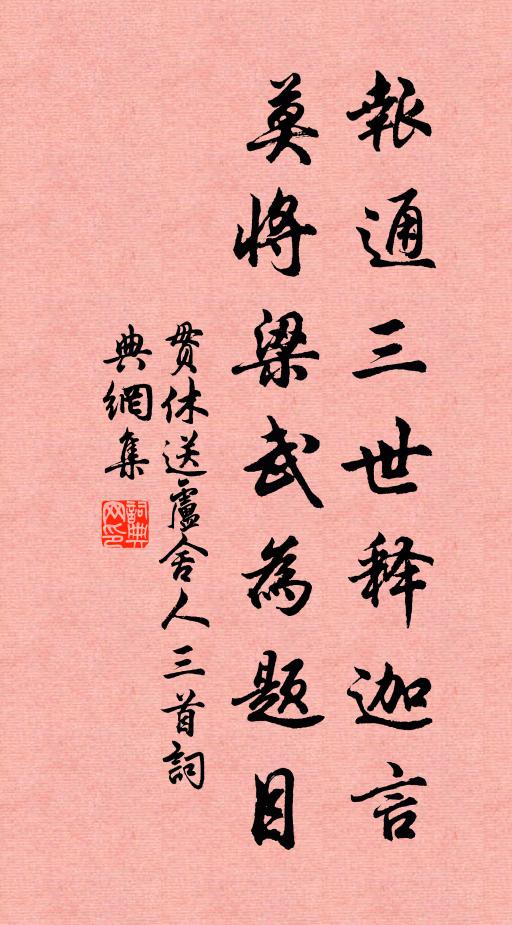 報通三世释迦言
莫將梁武為題目
贯休送盧舍人三首詞
典網集
詞典
网印